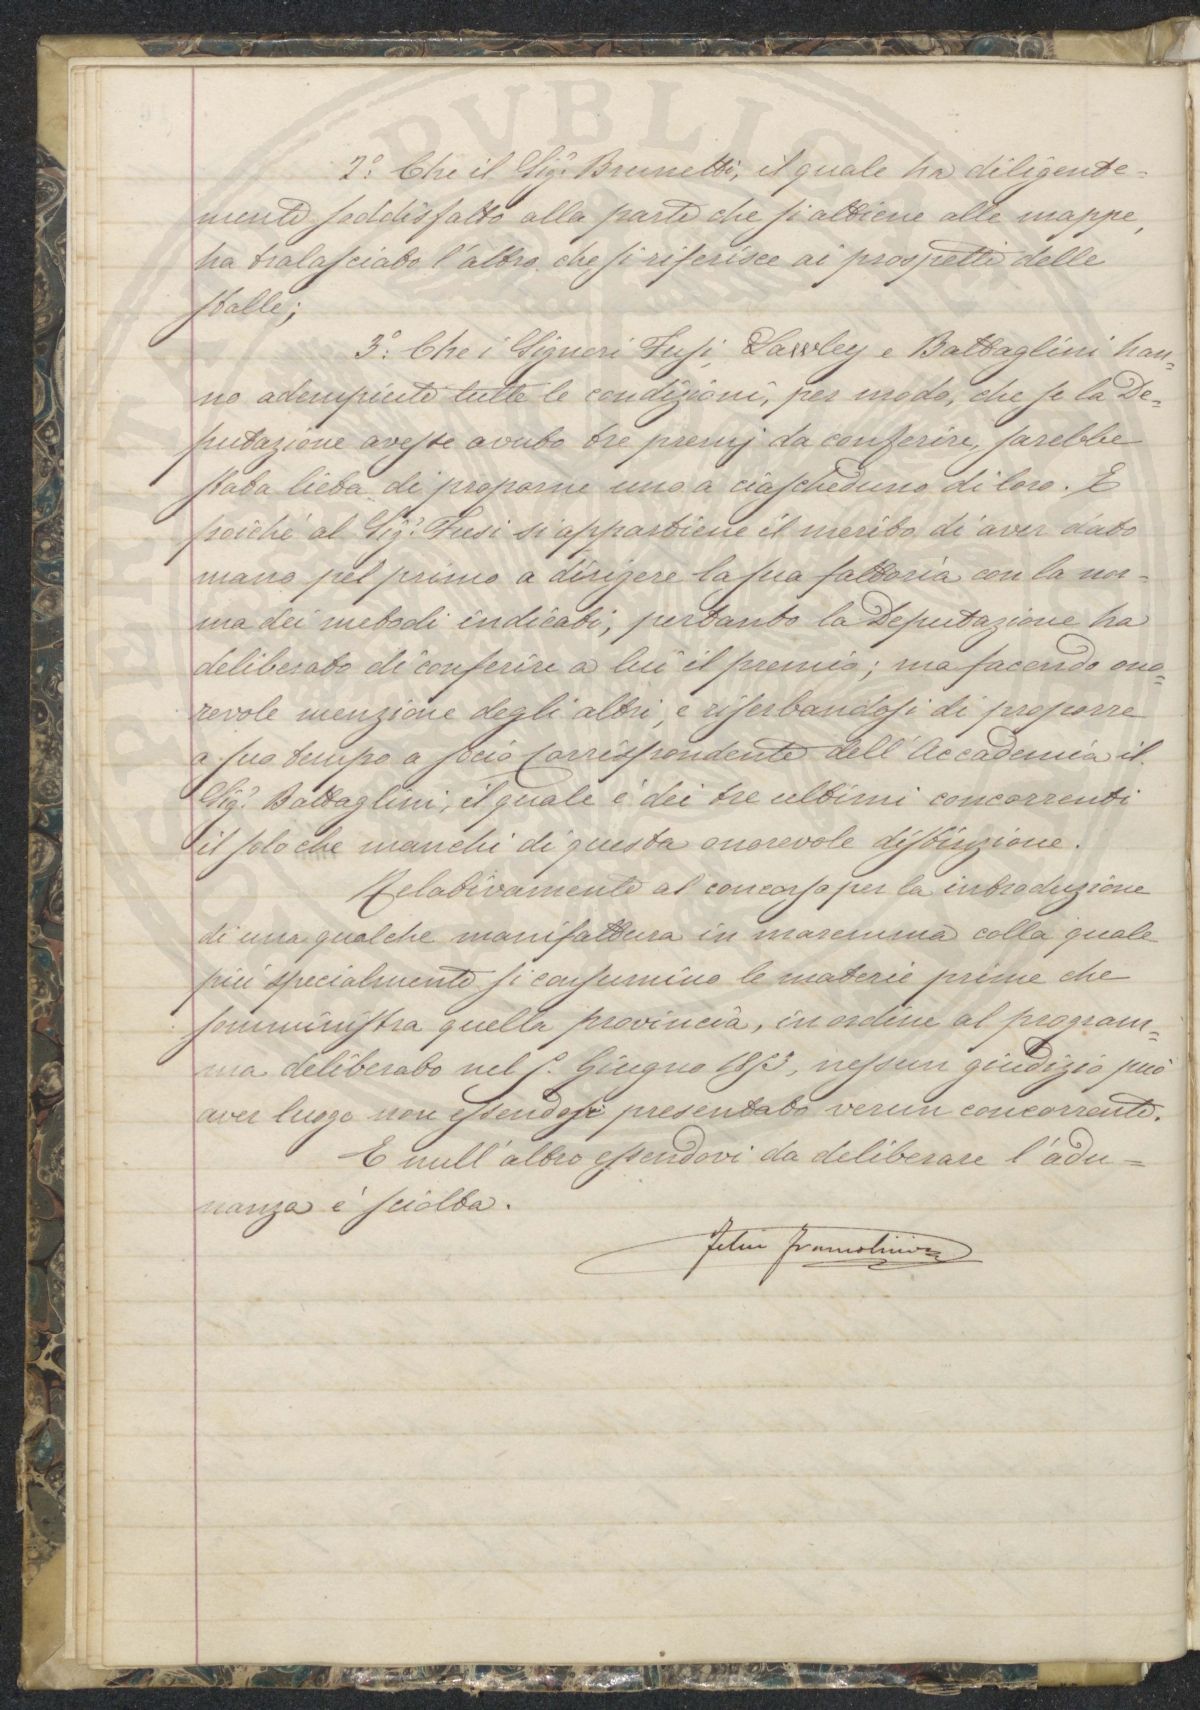 2.° Che il Sig.r Brunetti, il quale ha diligente=
mente soddisfatto alla parte che si attiene alle mappe,
ha tralasciato l'altro che si riferisce ai prospetti delle
stalle;
3.° Che i Signori Fusi, Lawley e Battaglini han=
no adempiuto tutte le condizioni, per modo, che se la De=
putazione avesse avuto tre premj da conferire, sarebbe
stata lieta di proporne uno a ciascheduno di loro. E
poiché al Sig.r Fusi si appartiene il merito di aver dato
mano pel primo a dirigere la sua fattoria con la nor=
ma dei metodi indicati, pertanto la Deputazione ha
deliberato di conferire a lui il premio; ma facendo ono=
revole menzione degli altri, e riserbandosi di proporre
a suo tempo a socio corrispondente dell'Accademia il
Sig.r Battaglini, il quale è dei tre ultimi concorrenti
il solo che manchi di questa onorevole distinzione.
Relativamente al concorso per la introduzione
di una qualche manifattura in maremma colla quale
più specialmente si consumino le materie prime che
somministra quella provincia, in ordine al program=
ma deliberato nel 5. Giugno 1853, nessun giudizio può
aver luogo non essendosi presentato verun concorrente.
E null'altro essendovi da deliberare l'adu=
nanza è sciolta.